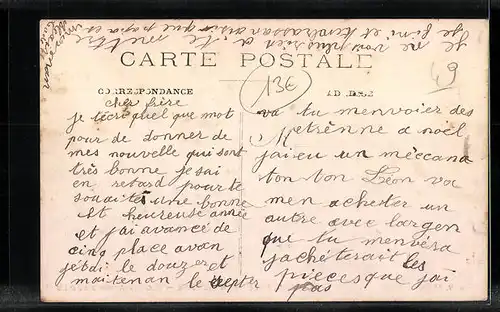 je ne voit plus rien a te mettre
je fini et tenbrassan ainsi que papa et
CARTE POSTALE
13E
49
CORRESPONDANCE
ADRESSE
cher frère
je técri quel que mot
pour de donner de
mes nouvelle qui sont
très bonne je sai
en retard pour te
souaiter une bonne
et heureuse année
et j'ai avancé de
cinq place avan
jetdi le douze et
maitenan le septer
va tu menvoier des
Metrènne a noël
jai eu un mécana
ton ton Léon va
men acheter un
autre avec largen
que tu menvéra
jachèterait les
pièces que jai
pas